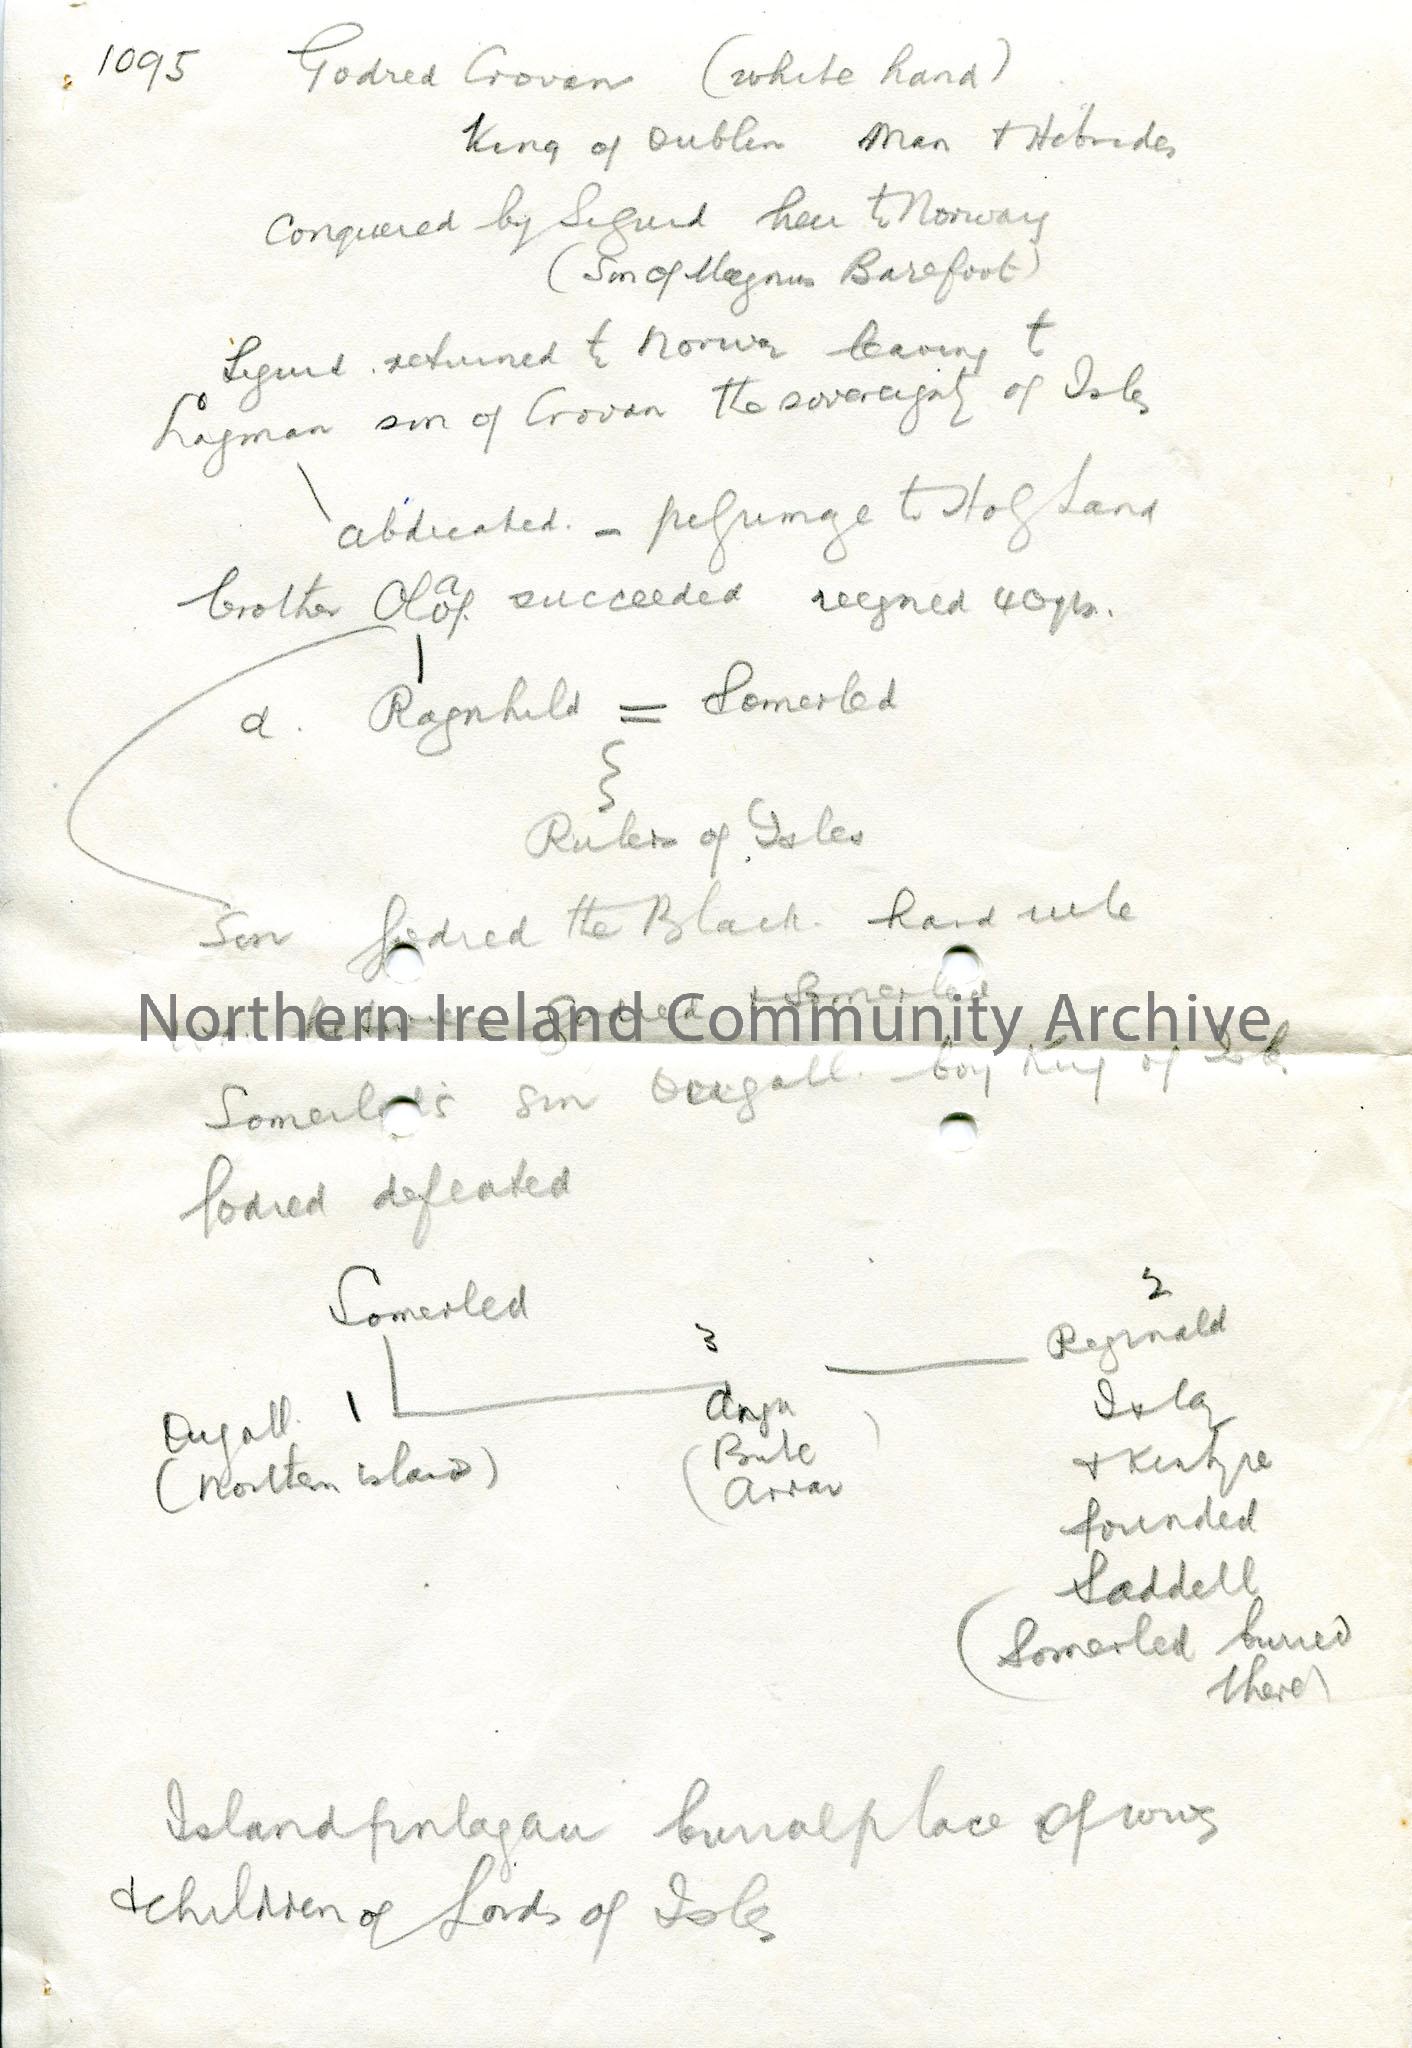 1095 Godred Crovan (white hand)
King of Dublin Man + Hebrides
Conquered by Sigurd heir to Norway
(Son of Magnus Barefoot)
Sigurd returned to Norway leaving to
Lagman son of Crovan the sovereignty of Isles
abdicated. – pilgrimage to Holy Land
brother Olaf succeeded reigned 40 yrs.
d. Ragnhild = Somerled
Rulers of Isles
Son Godred the Black. hard rule
War between Godred + Somerled
Northern Ireland Community Archive
Somerled's son Dougall. boy King of Isles
Godred defeated
Somerled
1 3 2
Dugall. Angu Reginald
(Northern islands) (Bute Arran) Islay
+ Kintyre
founded
Saddell
(Somerled buried
there)
Island finlagan burial place of wives
+ children of Lords of Isles